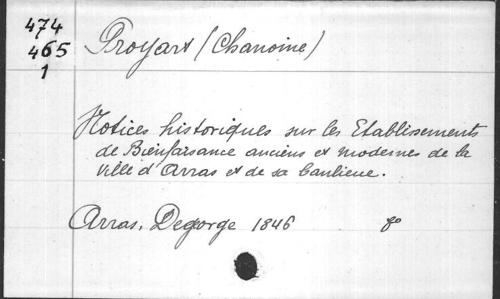 474
465
1
Proyart (Chanoine)
Notices historiques sur les Etablissements
de Bienfaisance anciens et modernes de la
ville d'Arras et de sa banlieue.
Arras, Degorge 1846 8o